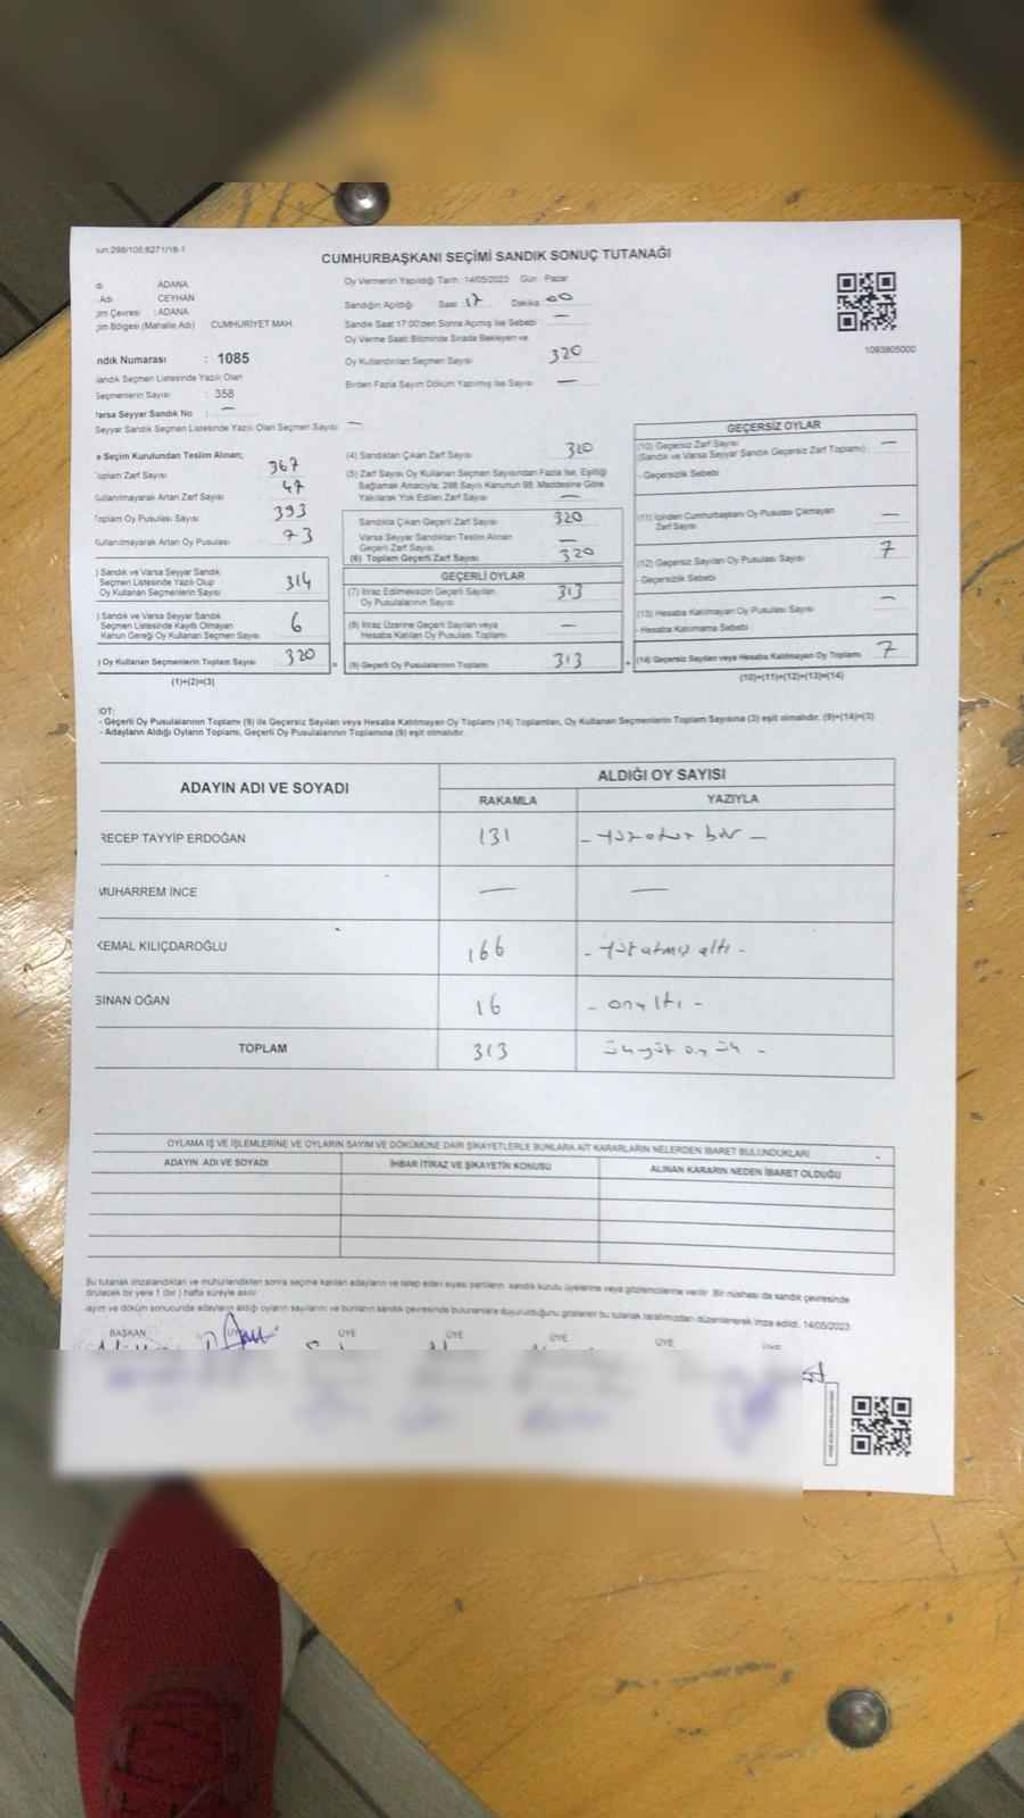 CUMHURBAŞKANI SEÇİMİ SANDIK SONUÇ TUTANAĞI
ADANA
Adı CEYHAN
Çevresi : ADANA
Bölgesi (Mahalle Adı) CUMHURİYET MAH.
ndık Numarası : 1085
Sandık Seçmen Listesinde Yazılı Olan
Seçmenlerin Sayısı : 358
Varsa Seyyar Sandık No : —
Seyyar Sandık Seçmen Listesinde Yazılı Olan Seçmen Sayısı —
Oy Vermenin Yapıldığı Tarih: 14/05/2023 Gün : Pazar
Sandığın Açıldığı Saat 17 Dakika 00
Sandık Saat 17:00'den Sonra Açılmış İse Sebebi —
Oy Verme Saati Bitiminde Sırada Bekleyen ve
Oy Kullandırılan Seçmen Sayısı 320
Birden Fazla Sayım Döküm Yapılmış İse Sayısı —
1093805000
e Seçim Kurulundan Teslim Alınan;
Toplam Zarf Sayısı 367
Kullanılmayarak Artan Zarf Sayısı 47
Toplam Oy Pusulası Sayısı 393
Kullanılmayarak Artan Oy Pusulası 73
) Sandık ve Varsa Seyyar Sandık
Seçmen Listesinde Yazılı Olup
Oy Kullanan Seçmenlerin Sayısı 314
) Sandık ve Varsa Seyyar Sandık
Seçmen Listesinde Kayıtlı Olmayan
Kanun Gereği Oy Kullanan Seçmen Sayısı 6
) Oy Kullanan Seçmenlerin Toplam Sayısı 320
(1)+(2)=(3)
(4) Sandıktan Çıkan Zarf Sayısı 320
(5) Zarf Sayısı Oy Kullanan Seçmen Sayısından Fazla İse, Eşitliği
Sağlamak Amacıyla, 298 Sayılı Kanunun 98. Maddesine Göre
Yakılarak Yok Edilen Zarf Sayısı —
Sandıkta Çıkan Geçerli Zarf Sayısı 320
Varsa Seyyar Sandıktan Teslim Alınan
Geçerli Zarf Sayısı —
(6) Toplam Geçerli Zarf Sayısı 320
GEÇERLİ OYLAR
(7) İtiraz Edilmeksizin Geçerli Sayılan
Oy Pusulalarının Sayısı 313
(8) İtiraz Üzerine Geçerli Sayılan veya
Hesaba Katılan Oy Pusulası Toplamı —
(9) Geçerli Oy Pusulalarının Toplamı 313
GEÇERSİZ OYLAR
(10) Geçersiz Zarf Sayısı
(Sandık ve Varsa Seyyar Sandık Geçersiz Zarf Toplamı) —
- Geçersizlik Sebebi
(11) İçinden Cumhurbaşkanı Oy Pusulası Çıkmayan
Zarf Sayısı —
(12) Geçersiz Sayılan Oy Pusulası Sayısı 7
- Geçersizlik Sebebi
(13) Hesaba Katılmayan Oy Pusulası Sayısı —
- Hesaba Katılmama Sebebi
(14) Geçersiz Sayılan veya Hesaba Katılmayan Oy Toplamı 7
(10)+(11)+(12)+(13)=(14)
NOT:
- Geçerli Oy Pusulalarının Toplamı (9) ile Geçersiz Sayılan veya Hesaba Katılmayan Oy Toplamı (14) Toplamları, Oy Kullanan Seçmenlerin Toplam Sayısına (3) eşit olmalıdır. (9)+(14)=(3)
- Adayların Aldığı Oyların Toplamı, Geçerli Oy Pusulalarının Toplamına (9) eşit olmalıdır.
ADAYIN ADI VE SOYADI
ALDIĞI OY SAYISI
RAKAMLA YAZIYLA
RECEP TAYYİP ERDOĞAN 131 - yüzotuz bir -
MUHARREM İNCE — —
KEMAL KILIÇDAROĞLU 166 - yüz atmış altı -
SİNAN OĞAN 16 - onaltı -
TOPLAM 313 üçyüz on üç -
OYLAMA İŞ VE İŞLEMLERİNE VE OYLARIN SAYIM VE DÖKÜMÜNE DAİR ŞİKAYETLERLE BUNLARA AİT KARARLARIN NELERDEN İBARET BULUNDUKLARI
ADAYIN ADI VE SOYADI İHBAR İTİRAZ VE ŞİKAYETİN KONUSU ALINAN KARARIN NEDEN İBARET OLDUĞU
Bu tutanak imzalandıktan ve mühürlendikten sonra seçime katılan adayların ve talep eden siyasi partilerin sandık kurulu üyelerine veya gözlemcilerine verilir. Bir nüshası da sandık çevresinde
bir yere 1 (bir) hafta süreyle asılır.
ayım ve döküm sonucunda adayların aldığı oyların sayılarını ve bunların sandık çevresinde bulunanlara duyurulduğunu gösteren bu tutanak tarafımızdan düzenlenerek imza edildi. 14/05/2023
BAŞKAN ÜYE ÜYE ÜYE ÜYE ÜYE ÜYE